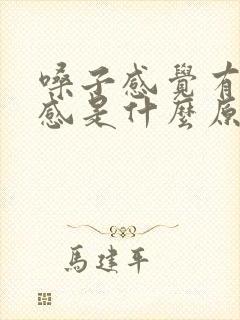 嗓子感覺有
感是什麼原
馬建平